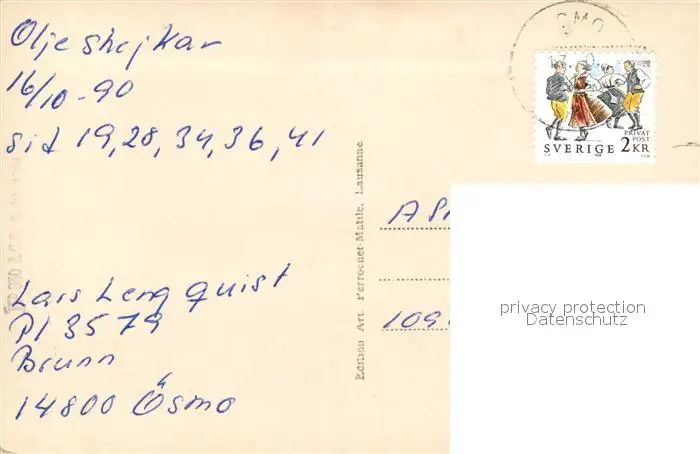 Olje shejkar
16/10-90
sid 19,28,34,36,41
Lars Lengquist
Pl 3579
Brunn
14800 Ösmo
Edition Art. Perrochet-Matile, Lausanne
SMO
PRIVAT
POST
SVERIGE 2KR
109
privacy protection
Datenschutz